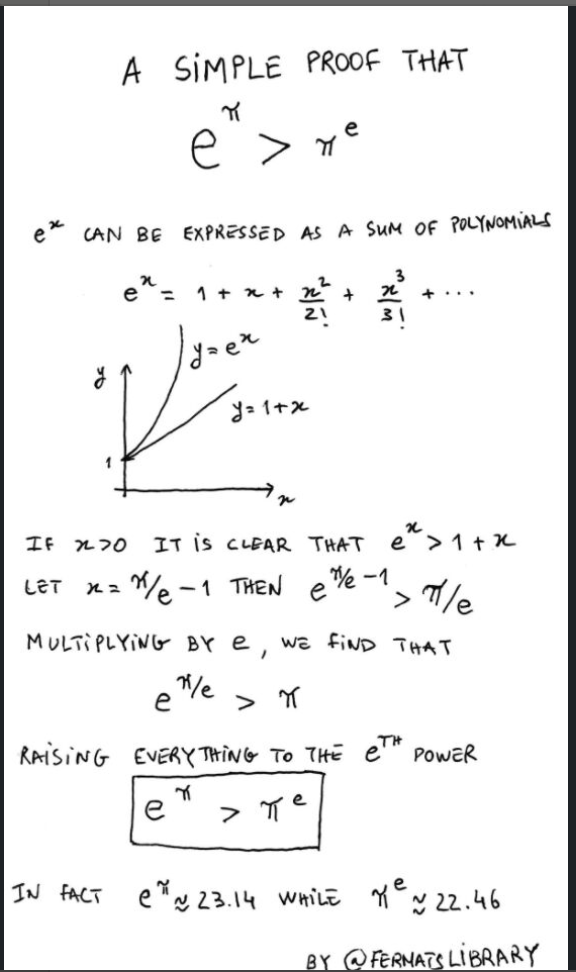 A SIMPLE PROOF THAT
e^π > π^e
e^x CAN BE EXPRESSED AS A SUM OF POLYNOMIALS
e^x = 1 + x + x^2/2! + x^3/3! + ...
y = e^x
y
y = 1+x
1
x
IF x>0 IT IS CLEAR THAT e^x > 1 + x
LET x = π/e - 1 THEN e^(π/e - 1) > π/e
MULTIPLYING BY e, WE FIND THAT
e^(π/e) > π
RAISING EVERYTHING TO THE e^TH POWER
e^π > π^e
IN FACT e^π ≈ 23.14 WHILE π^e ≈ 22.46
BY @FERMATSLIBRARY